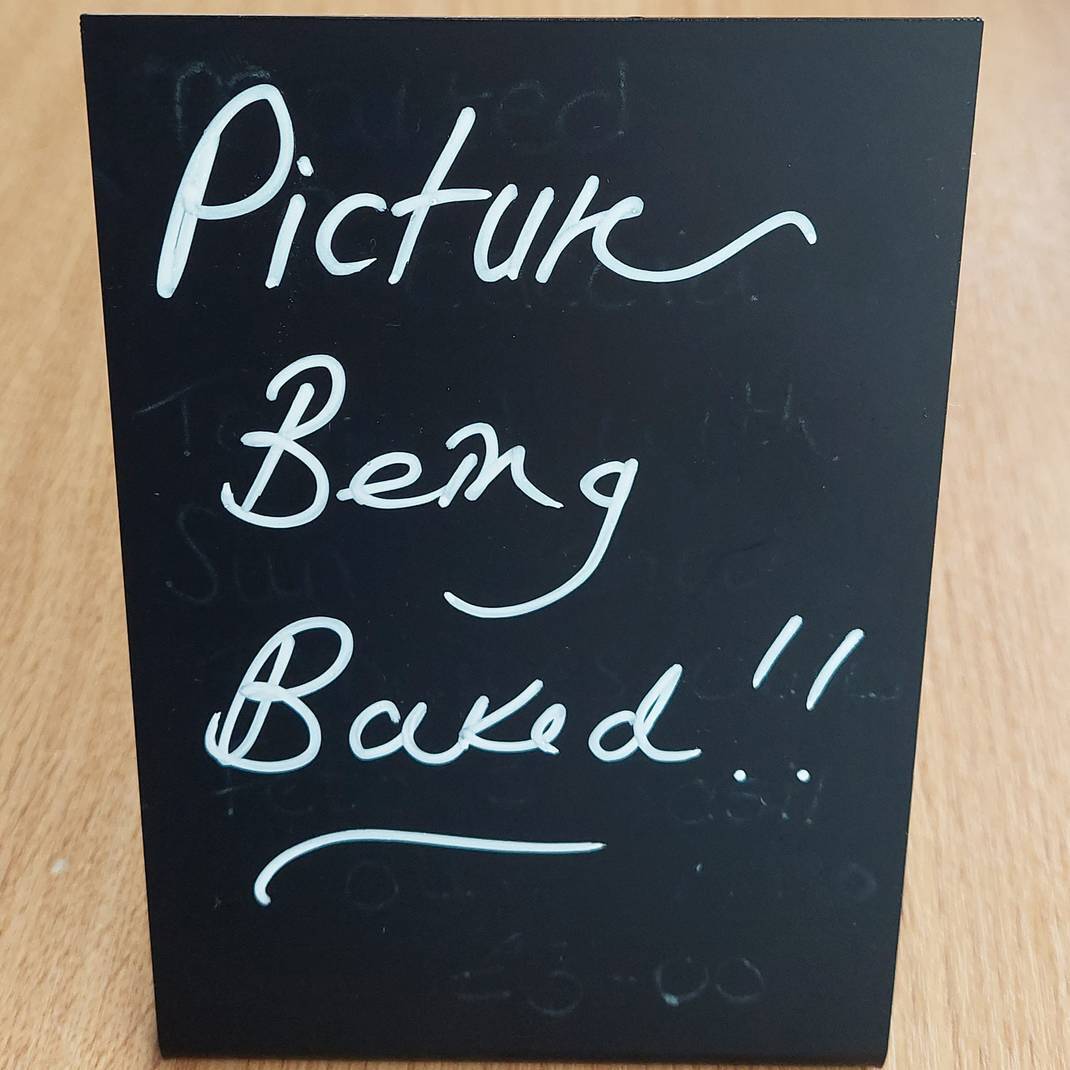 Picture
Being
Baked!!